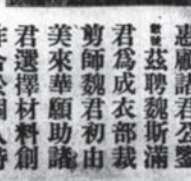 惠顧諸君公鑒
敝號茲聘魏斯滿
君爲成衣部裁
剪師魏君初由
美來華願助議
君選擇材料創